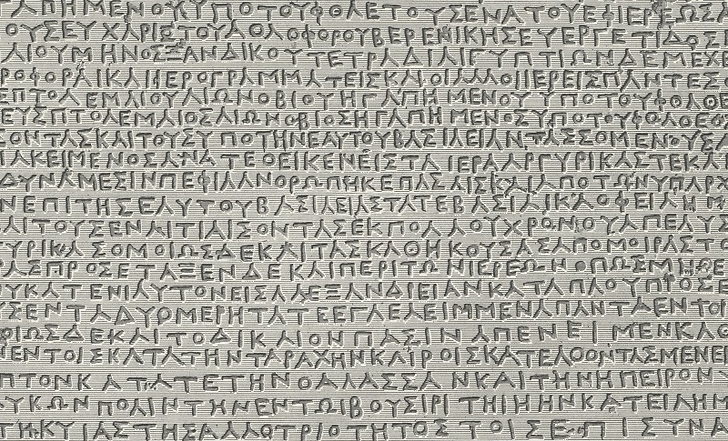 ΑΠΗΜΕΝΟΥΥΠΟΤΟΥΦΘΑΕΤΟΥΣΕΝΑΤΟΥΕΦΙΕΡΕΩΣ
ΟΥΣΕΥΧΑΡΙΣΤΟΥΑΘΛΟΦΟΡΟΥΒΕΡΕΝΙΚΗΣΕΥΕΡΓΕΤΙΔΟΣ
ΑΙΟΥΜΗΝΟΣΞΑΝΔΙΚΟΥΤΕΤΡΑΔΙΑΙΓΥΠΤΙΩΝΔΕΜΕΧΕ
ΡΟΦΟΡΑΙΚΑΙΙΕΡΟΓΡΑΜΜΑΤΕΙΣΚΑΙΟΙΑΛΛΟΙΙΕΡΕΙΣΠΑΝΤΕΣ
ΕΠΤΟΛΕΜΑΙΟΥΑΙΩΝΟΒΙΟΥΗΓΑΠΗΜΕΝΟΥΥΠΟΤΟΥΦΘΑΘ
ΕΥΣΠΤΟΛΕΜΑΙΟΣΑΙΩΝΟΒΙΟΣΗΓΑΠΗΜΕΝΟΣΥΠΟΤΟΥΦΘΑΘΕΟΣ
ΟΝΤΑΣΚΑΙΤΟΥΣΥΠΟΤΗΝΕΑΥΤΟΥΒΑΣΙΛΕΙΑΝΤΑΣΣΟΜΕΝΟΥΣ
ΑΚΕΙΜΕΝΟΣΑΝΑΤΕΘΕΙΚΕΝΕΙΣΤΑΙΕΡΑΑΡΓΥΡΙΚΑΣΤΕΚΑ
ΔΥΝΑΜΕΣΙΝΠΕΦΙΛΑΝΘΡΩΠΗΚΕΠΑΣΙΚΑΙΑΠΟΤΩΝΥΠΑΡΧ
ΝΕΠΙΤΗΣΕΑΥΤΟΥΒΑΣΙΛΕΙΑΣΤΑΤΕΒΑΣΙΛΙΚΑΟΦΕΙΛΗΜ
ΑΙΤΟΥΣΕΝΑΙΤΙΑΙΣΟΝΤΑΣΕΚΠΟΛΛΟΥΧΡΟΝΟΥΑΠΕΛΥΣ
ΥΡΙΚΑΣΟΜΟΙΩΣΔΕΚΑΙΤΑΣΚΑΘΗΚΟΥΣΑΣΑΠΟΜΟΙΡΑΣΤ
ΣΠΡΟΣΕΤΑΞΕΝΔΕΚΑΙΠΕΡΙΤΩΝΙΕΡΕΩΝΟΠΩΣΜΗΘΕΝ
ΟΥΚΑΤΕΝΙΑΥΤΟΝΕΙΣΑΛΕΞΑΝΔΡΕΙΑΝΚΑΤΑΠΛΟΥΠΡΟΣΕ
ΥΣΕΝΤΑΔΥΟΜΕΡΗΤΑΤΕΕΓΛΕΛΕΙΜΜΕΝΑΠΑΝΤΑΕΝΤΟΙ
ΙΩΣΔΕΚΑΙΤΟΔΙΚΑΙΟΝΠΑΣΙΝΑΠΕΝΕΙΜΕΝΚΑΘ
ΜΕΝΤΟΙΣΚΑΤΑΤΗΝΤΑΡΑΧΗΝΚΑΙΡΟΙΣΚΑΤΕΛΘΟΝΤΑΣΜΕΝΕΙ
ΠΤΟΝΚΑΤΑΤΕΤΗΝΘΑΛΑΣΣΑΝΚΑΙΤΗΝΗΠΕΙΡΟΝ
ΥΚΩΝΠΟΛΙΝΤΗΝΕΝΤΩΙΒΟΥΣΙΡΙΤΗΙΗΗΝΚΑΤΕΙΛΗΜ
ΤΗΚΥΙΑΣΤΗΣΑΛΛΟΤΡΙΟΤΗΤΟΣΤΟΙΣΕΠΙΣΥΝΑ